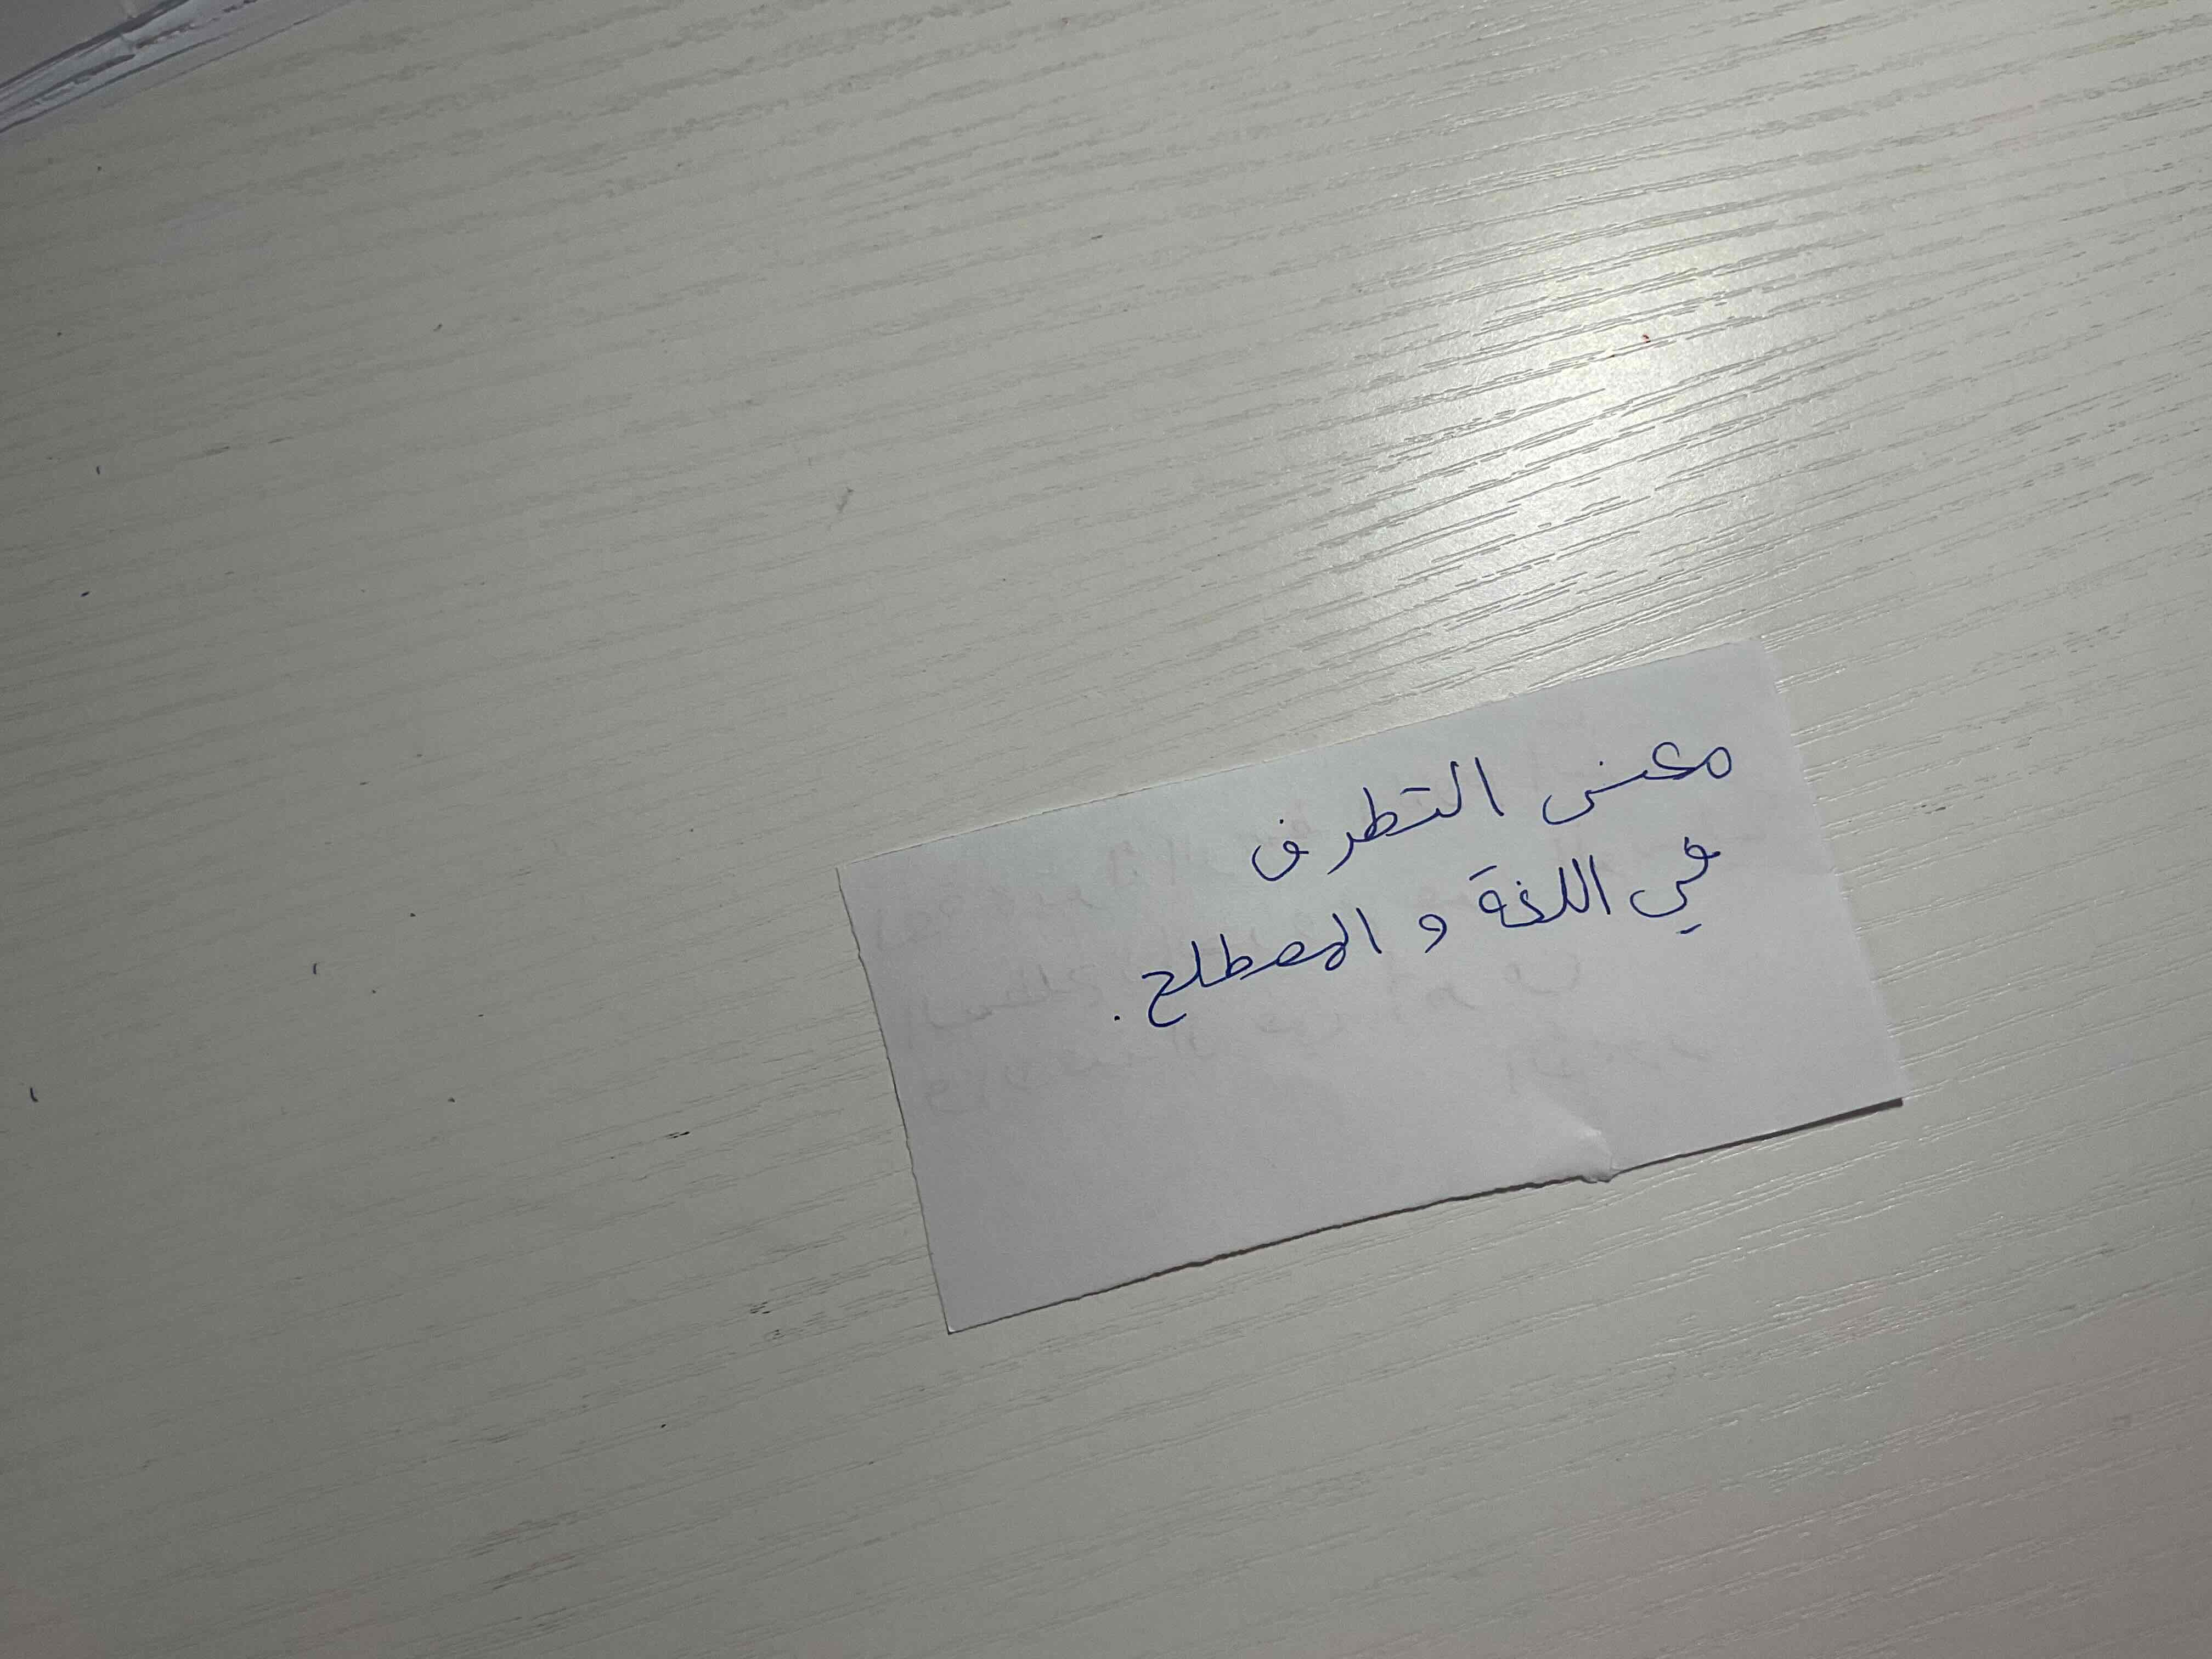 معنى التطرف
في اللغة و المصطلح.